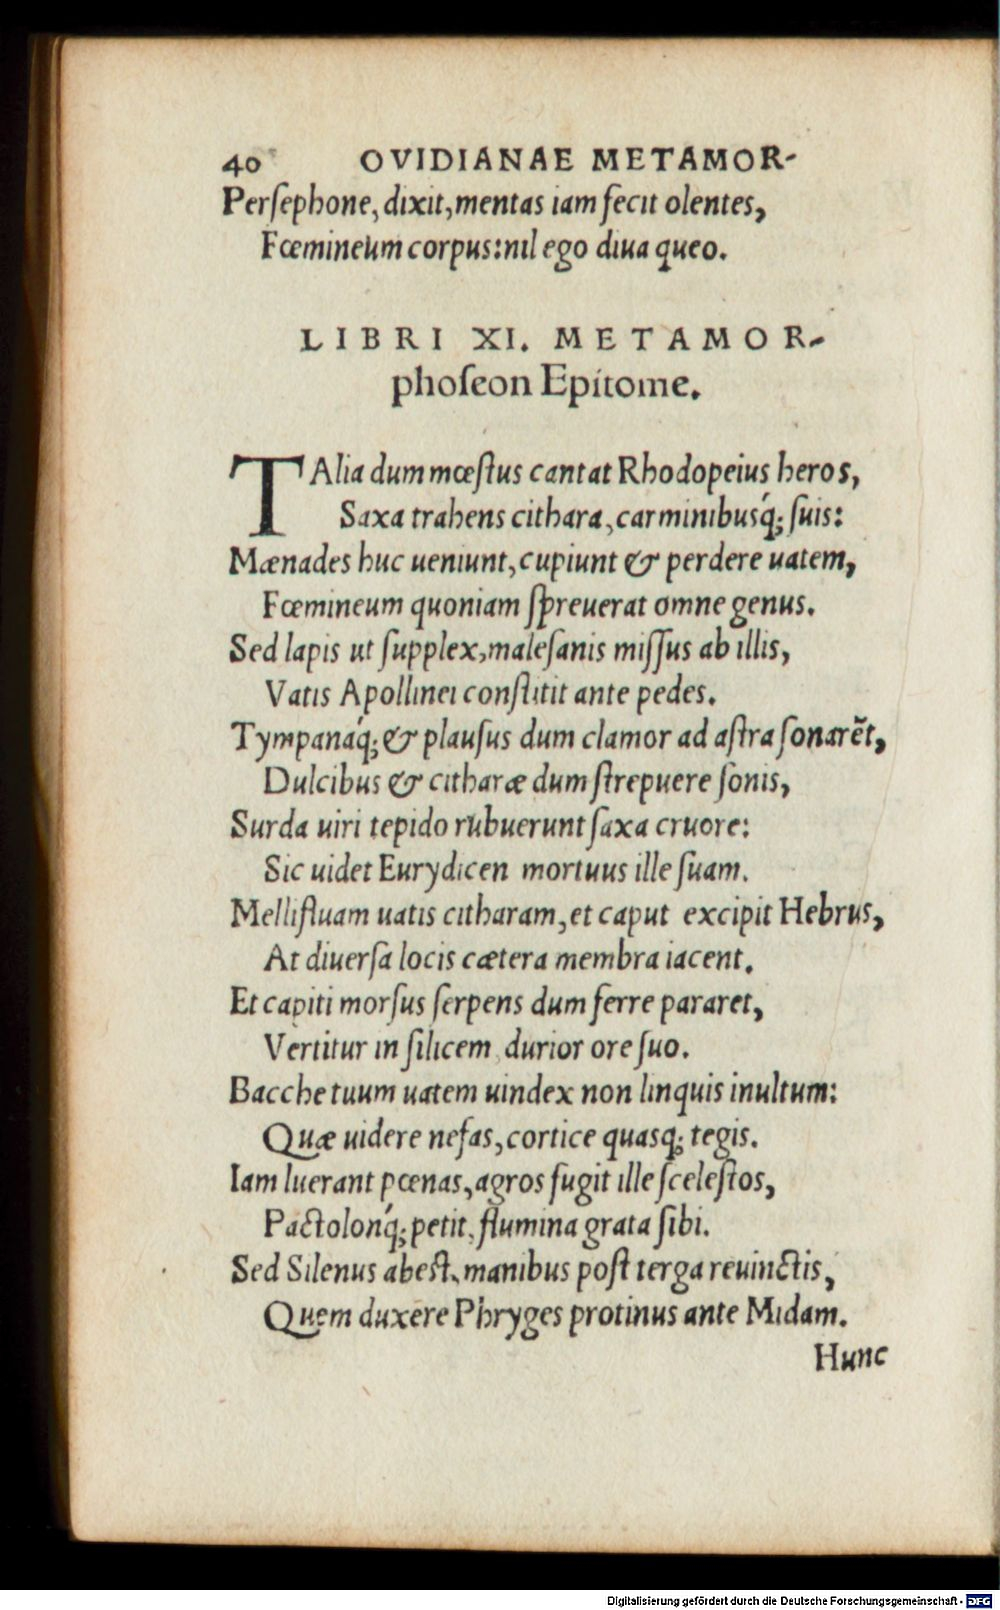 40 OVIDIANAE METAMOR-
Perſephone, dixit, mentas iam fecit olentes,
Fœmineum corpus: nil ego diua queo.
LIBRI XI. METAMOR-
phoſeon Epitome.
TAlia dum mœſtus cantat Rhodopeius heros,
Saxa trahens cithara, carminibusq́; ſuis:
Mænades huc ueniunt, cupiunt & perdere uatem,
Fœmineum quoniam ſpreuerat omne genus.
Sed lapis ut ſupplex, maleſanis miſſus ab illis,
Vatis Apollinei conſtitit ante pedes.
Tympanaq́; & plauſus dum clamor ad aſtra ſonarēt,
Dulcibus & citharæ dum ſtrepuere ſonis,
Surda uiri tepido rubuerunt ſaxa cruore:
Sic uidet Eurydicen mortuus ille ſuam.
Mellifluam uatis citharam, et caput excipit Hebrus,
At diuerſa locis cætera membra iacent.
Et capiti morſus ſerpens dum ferre pararet,
Vertitur in ſilicem durior ore ſuo.
Bacche tuum uatem uindex non linquis inultum:
Quæ uidere nefas, cortice quasq; tegis.
Iam luerant pœnas, agros fugit ille ſceleſtos,
Pactolonq́; petit, flumina grata ſibi.
Sed Silenus abeſt, manibus poſt terga reuinctis,
Quem duxere Phryges protinus ante Midam.
Hunc
Digitalisierung gefördert durch die Deutsche Forschungsgemeinschaft - DFG